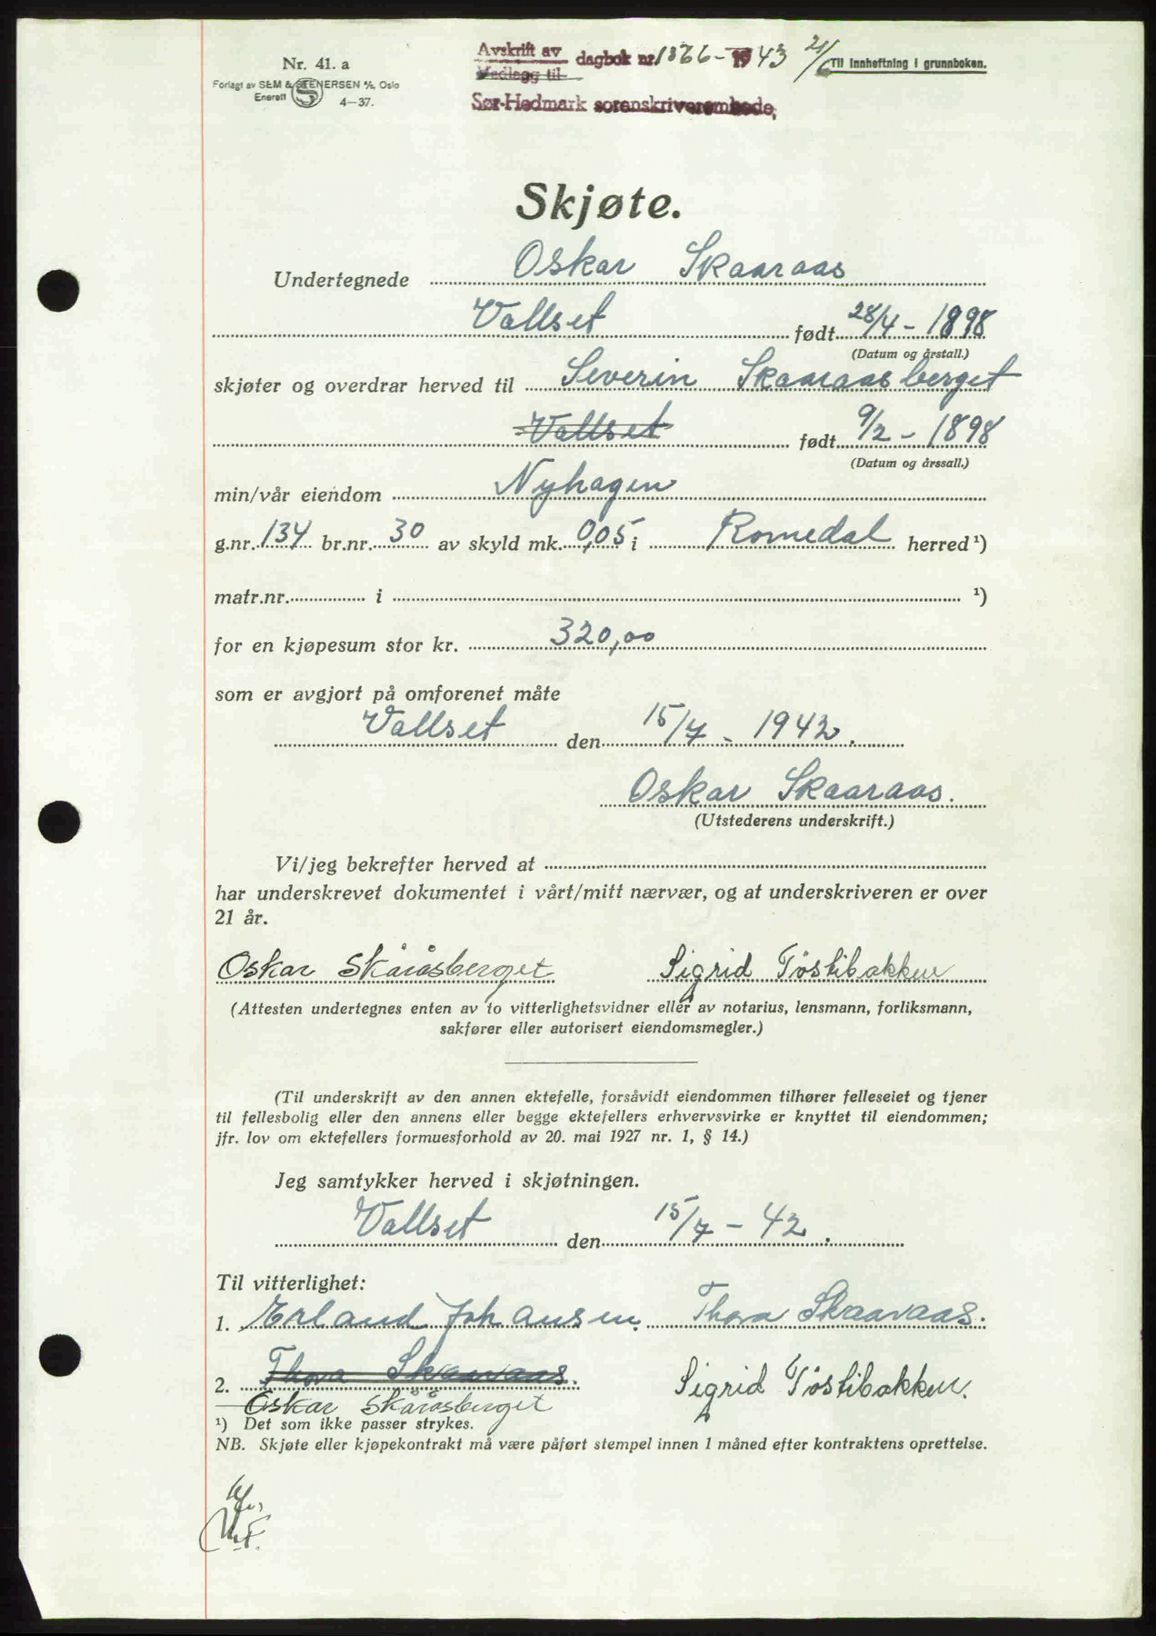 Nr. 41. a
Forlagt av SEM & STENERSEN A/S, Oslo
Enerett 4—37.
Avskrift av
Vedlegg til
dagbok nr. 1366 - 1943 21/6 Til innheftning i grunnboken.
Sør-Hedmark sorenskriverembede,
Skjøte.
Undertegnede Oskar Skaaraas
Vallset født 28/4 - 1898
(Datum og årstall.)
skjøter og overdrar herved til Severin Skaaraasberget
Vallset født 9/2 - 1898
(Datum og årssall.)
min/vår eiendom Nyhagen
g.nr. 134 br.nr. 30 av skyld mk. 0,05 i Romedal herred ¹)
matr.nr. i ¹)
for en kjøpesum stor kr. 320,00
som er avgjort på omforenet måte
Vallset den 15/7 - 1942.
Oskar Skaaraas.
(Utstederens underskrift.)
Vi/jeg bekrefter herved at
har underskrevet dokumentet i vårt/mitt nærvær, og at underskriveren er over
21 år.
Oskar Skåråsberget Sigrid Töstibakken
(Attesten undertegnes enten av to vitterlighetsvidner eller av notarius, lensmann, forliksmann,
sakfører eller autorisert eiendomsmegler.)
(Til underskrift av den annen ektefelle, forsåvidt eiendommen tilhører felleseiet og tjener
til fellesbolig eller den annens eller begge ektefellers erhvervsvirke er knyttet til eiendommen;
jfr. lov om ektefellers formuesforhold av 20. mai 1927 nr. 1, § 14.)
Jeg samtykker herved i skjøtningen.
Vallset den 15/7 - 42.
Til vitterlighet:
1. Erland Johansen. Thora Skaaraas.
2. Thora Skaaraas. Sigrid Töstibakken.
Oskar Skåråsberget
¹) Det som ikke passer strykes.
NB. Skjøte eller kjøpekontrakt må være påført stempel innen 1 måned efter kontraktens oprettelse.